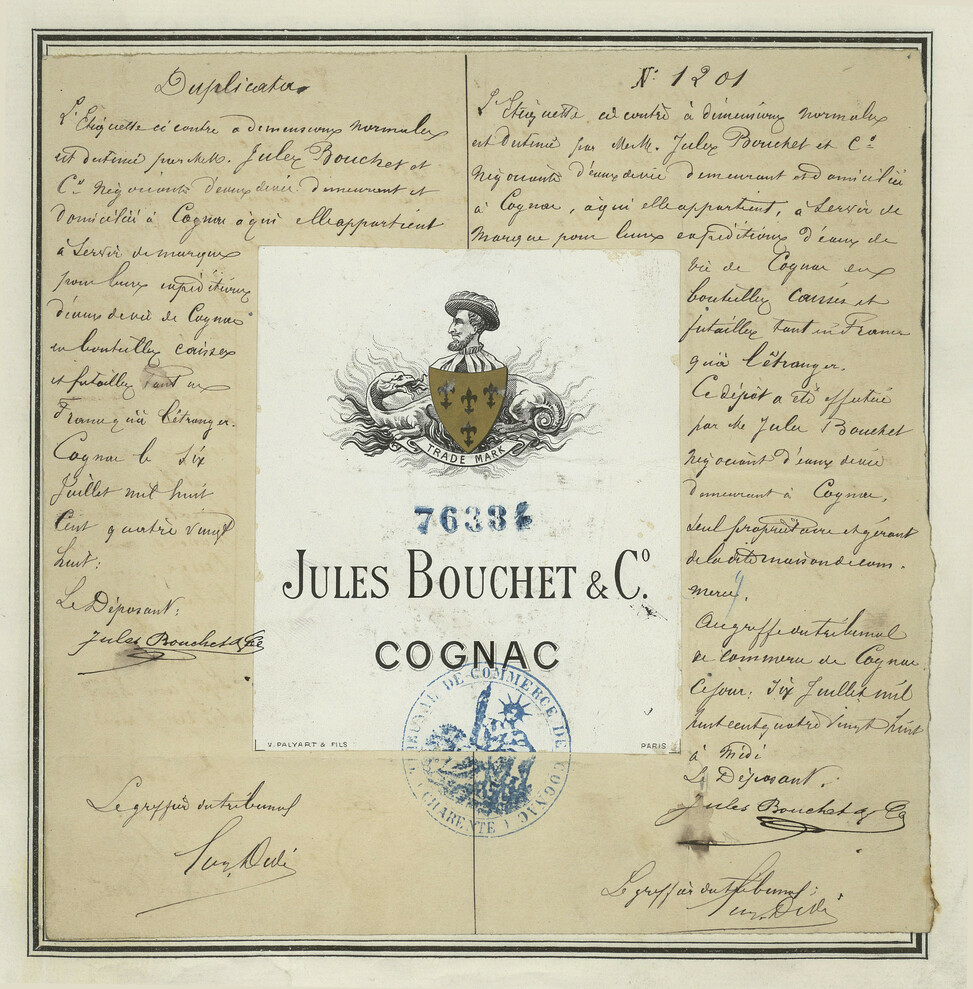 Duplicata
L'Etiquette ci contre a dimensions normales
est destinée par M.M. Jules Bouchet et
Cie Négociants d'eaux de vie demeurant et
domiciliés à Cognac à qui elle appartient
à servir de marque
pour leurs expéditions
d'eaux de vie de Cognac
en bouteilles caisses
et futailles tant en
France qu'à l'étranger.
Cognac le six
Juillet mil huit
cent quatre vingt
huit:
Le Déposant:
Jules Bouchet & Cie
Le greffier du tribunal
N° 1201
L'Etiquette, ci contre à dimensions normales
est destinée par MM. Jules Bouchet et Cie
Négociants d'eaux de vie demeurant et domiciliés
à Cognac, à qui elle appartient, à servir de
marque pour leurs expéditions d'eaux de
vie de Cognac en
bouteilles caisses et
futailles tant en France
qu'à l'étranger.
Ce dépôt a été effectué
par M Jules Bouchet
négociant d'eaux de vie
demeurant à Cognac,
seul propriétaire et gérant
de la dite maison de com-
merce.
Au greffe du tribunal
de commerce de Cognac
ce jour: six Juillet mil
huit cent quatre vingt huit
à midi
Le Déposant:
Jules Bouchet & Cie
Le greffier du tribunal:
TRADE MARK
7638
JULES BOUCHET & Cº.
COGNAC
V. PALYART & FILS
PARIS
TRIBUNAL DE COMMERCE DE COGNAC
(CHARENTE)